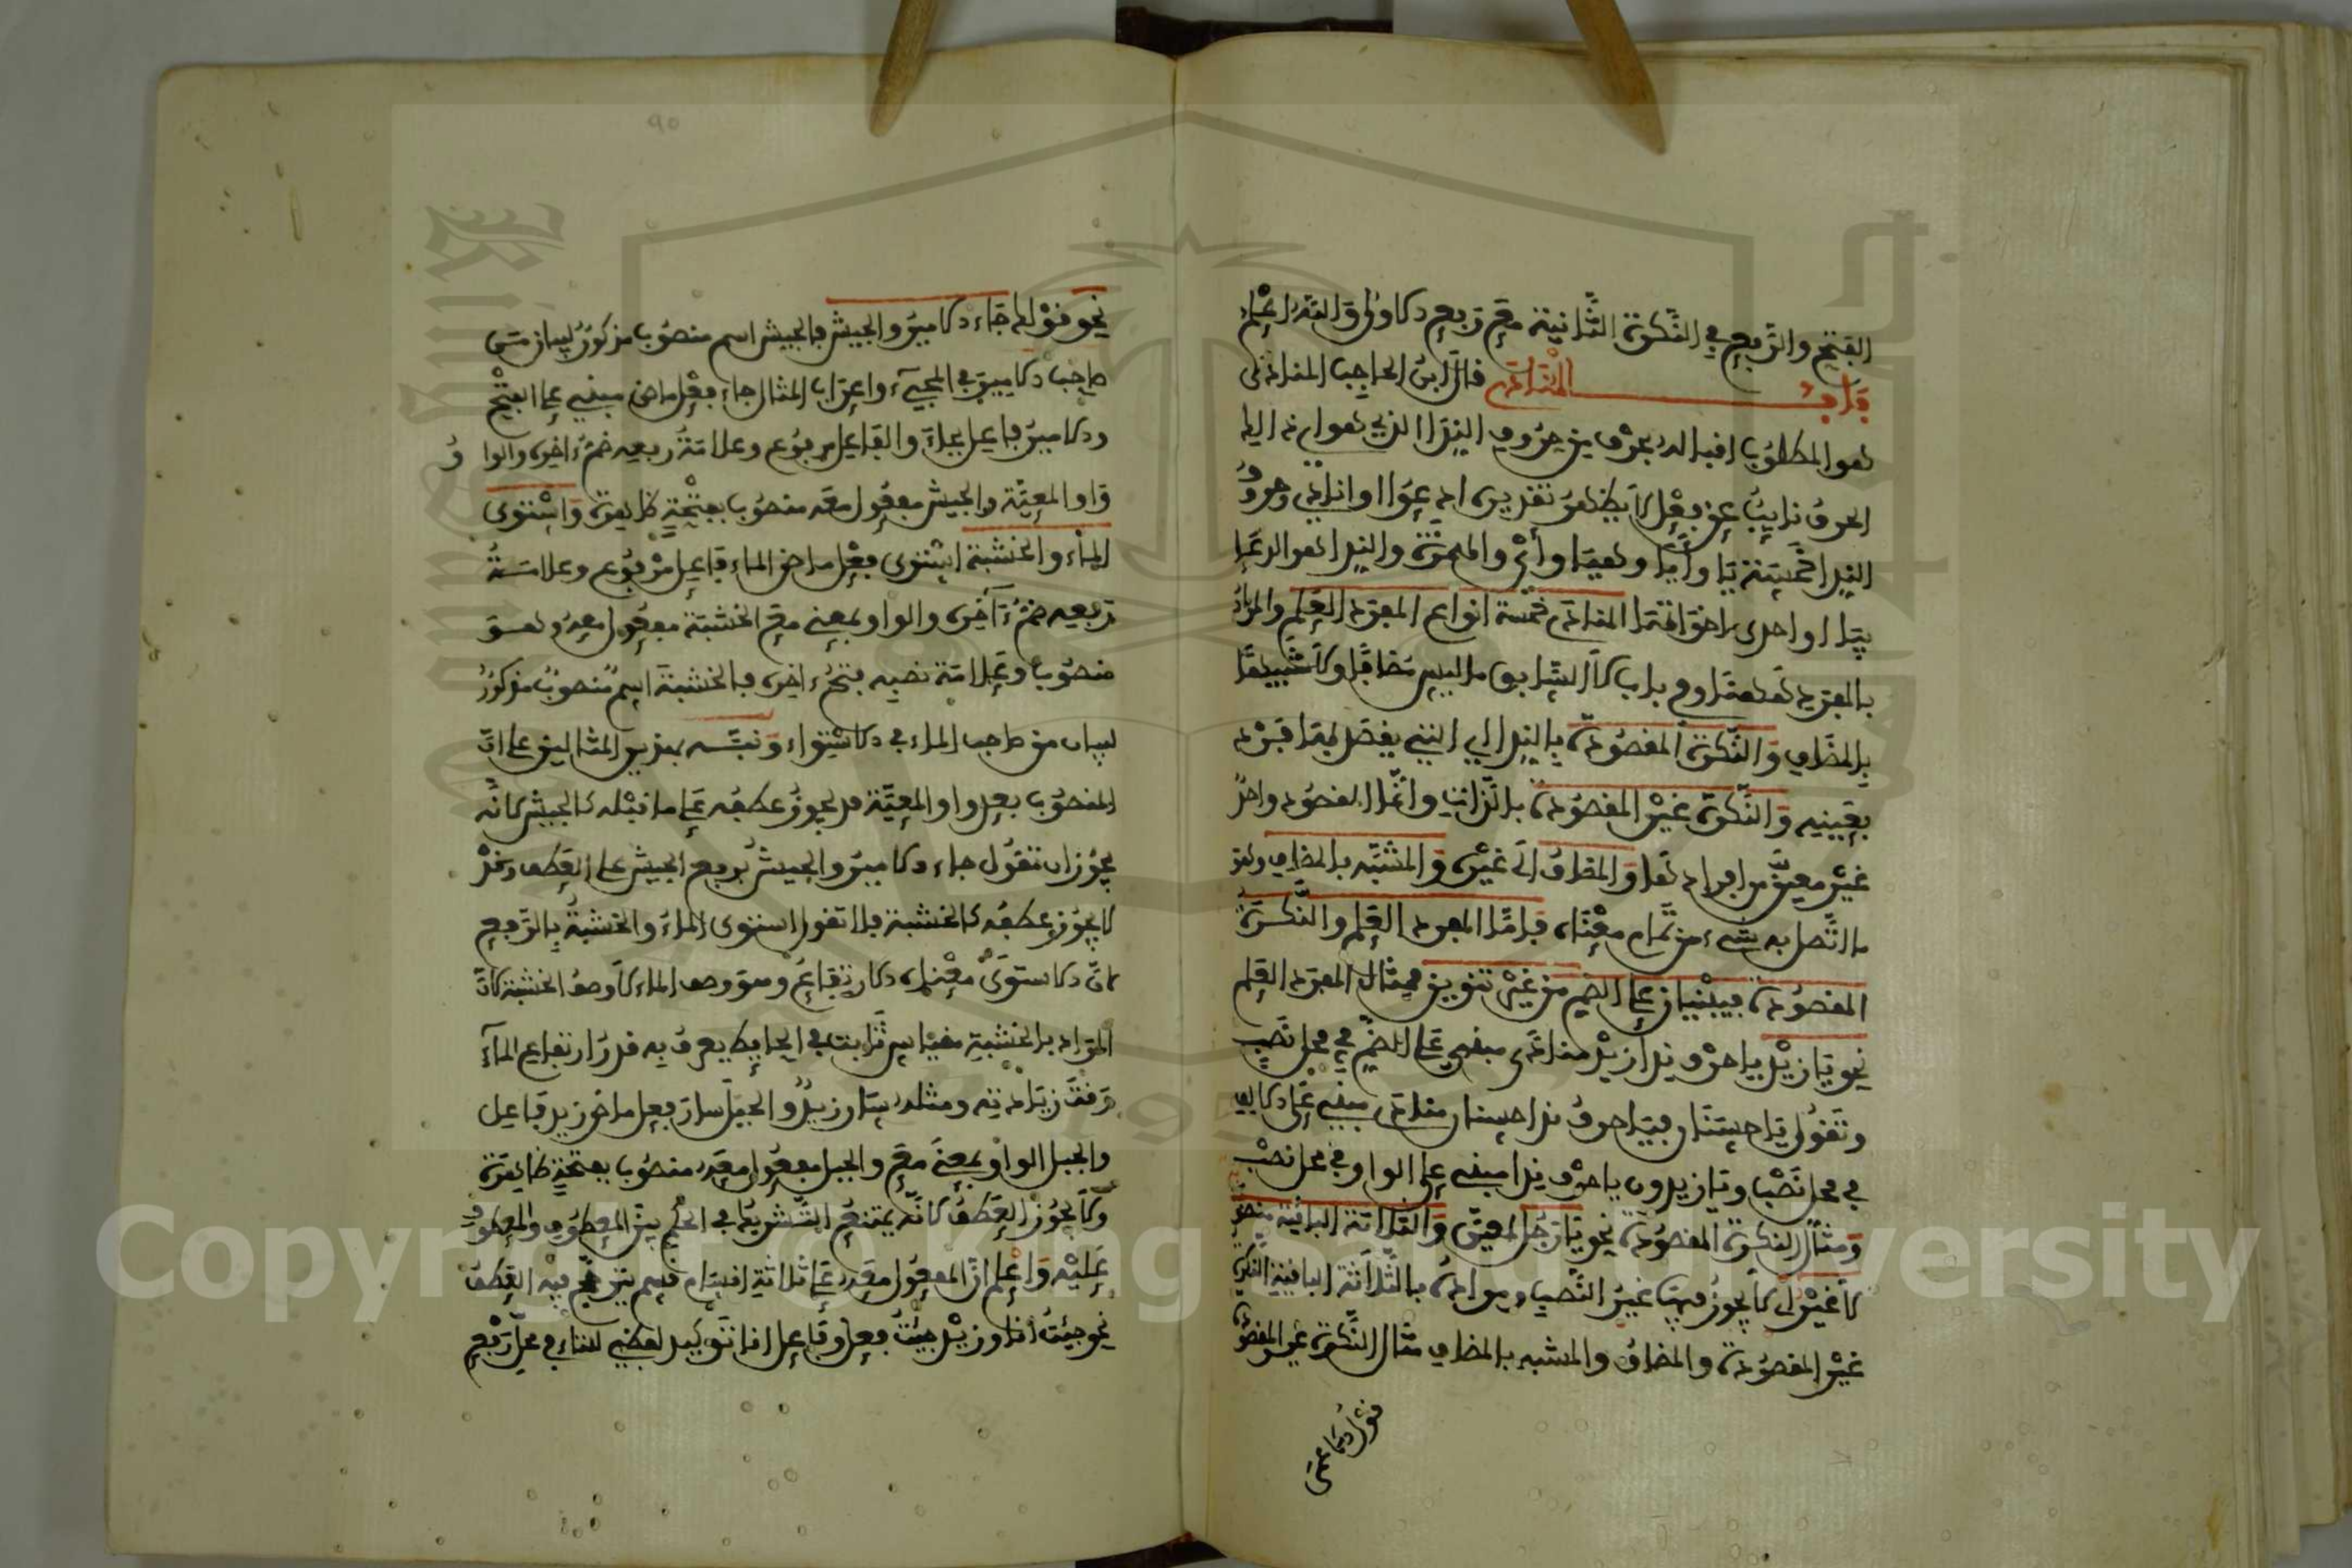 الفتح والرفع في النكرة الثانية مع رفع الأولى والله اعلم
باب المنادى قال ابن الحاجب المنادى
هو المطلوب اقباله بحرف من حروف النداء الذي هو
الحرف نايب عن فعل لا يظهر تقديره ادعوا او انادي وحروف
النداء خمسة يا وأيا وهيا وأي والهمزة والنداء هو الدعاء
بيا او احدى اخواتها المنادى خمسة انواع المفرد العلم والمراد
بالمفرد هنا وفي باب لا السابق ما ليس مضافا ولا شبيها
بالمضاف والنكرة المقصودة بالنداء التي يقصد بها فرد
بعينه والنكرة غير المقصودة بالذات وانما المقصود واحد
غير معين من افرادها والمضاف الى غيره والمشبه بالمضاف وهو
ما اتصل به شيء من تمام معناه فاما المفرد العلم والنكرة
المقصودة فيبنيان على الضم من غير تنوين فمثال المفرد العلم
نحو يا زيد يا حرف ندا زيد منادى مبني على الضم في محل نصب
وتقول يا حسنان فيا حرف ندا حسنان منادى مبني على الالف
في محل نصب ويا زيدون يا حرف ندا مبني على الواو في محل نصب
ومثال النكرة المقصودة نحو يا رجل لمعين والثلاثة الباقية منصوبة
لا غير اي لا يجوز فيها غير النصب ومراده بالثلاثة الباقية النكرة
غير المقصودة والمضاف والمشبه بالمضاف مثال النكرة غير المقصودة
قول الاعمى
90
نحو قولك جاء الامير والجيش فالجيش اسم منصوب مذكور لبيان من
صاحب الامير في المجيء واعراب المثال جاء فعل ماض مبني على الفتح
والامير فاعل بجاء والفاعل مرفوع وعلامة رفعه ضم اخره والواو
واو المعية والجيش مفعول معه منصوب بفتحة ظاهرة واستوى
الماء والخشبة استوى فعل ماض الماء فاعل مرفوع وعلامة
رفعه ضم آخره والواو بمعنى مع الخشبة مفعول معه وهو
منصوب وعلامة نصبه فتح اخره فالخشبة اسم منصوب مذكور
لبيان من صاحب الماء في الاستواء ونبه بهذين المثالين على ان
المنصوب بعد واو المعية قد يجوز عطفه على ما قبله كالجيش لانه
يجوز ان تقول جاء الامير والجيش برفع الجيش على العطف وقد
لا يجوز عطفه كالخشبة فلا تقول استوى الماء والخشبة بالرفع
لان الاستوى معناه الارتفاع وهو وصف الماء لا وصف الخشبة لان
المراد بالخشبة مقياس ثابت في الحايط يعرف به قدر ارتفاع المآء
وقت زيادته ومثله سار زيد والجبل سار فعل ماض زيد فاعل
والجبل الواو بمعنى مع والجبل مفعول معه منصوب بفتحة ظاهرة
ولا يجوز العطف لانه يمتنع التشريك في الحكم بين المعطوف والمعطوف
عليه واعلم ان المفعول معه على ثلاثة اقسام قسم يترجح فيه العطف
نحو جئت انا وزيد جئت فعل وفاعل انا توكيد لفظي للتاء في محل رفع
Copyright © King Saud University